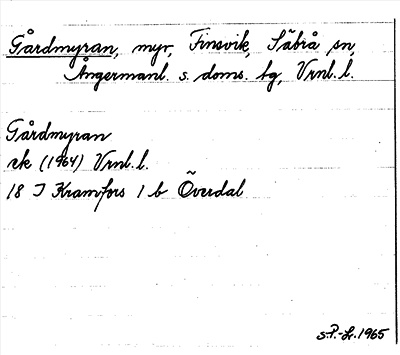 Gårdmyran, myr, Finsvik, Säbrå sn,
Ångermanl. s. doms. tg, Vrnl. l.
Gårdmyran
ek (1964) Vrnl. l.
18 J Kramfors 1 b Överdal
sP.-Lr. 1965